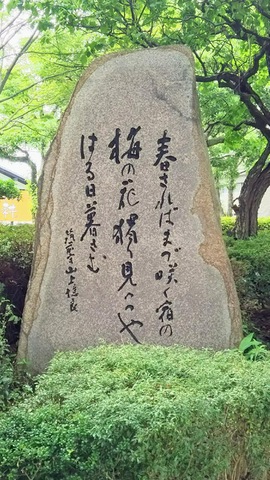 春さればまづ咲く宿の
梅の花獨り見つつや
はる日暮さむ
筑前守山上憶良